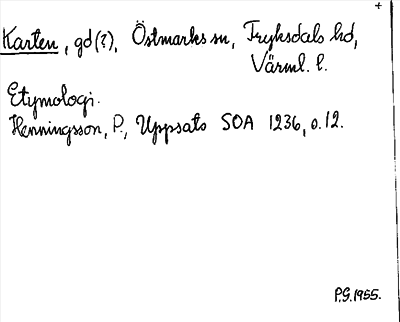 +
Karten, gd(?), Östmarks sn, Fryksdals hd,
Värml. l.
Etymologi.
Henningsson, P., Uppsats SOA 1236, s. 12.
P.G. 1955.